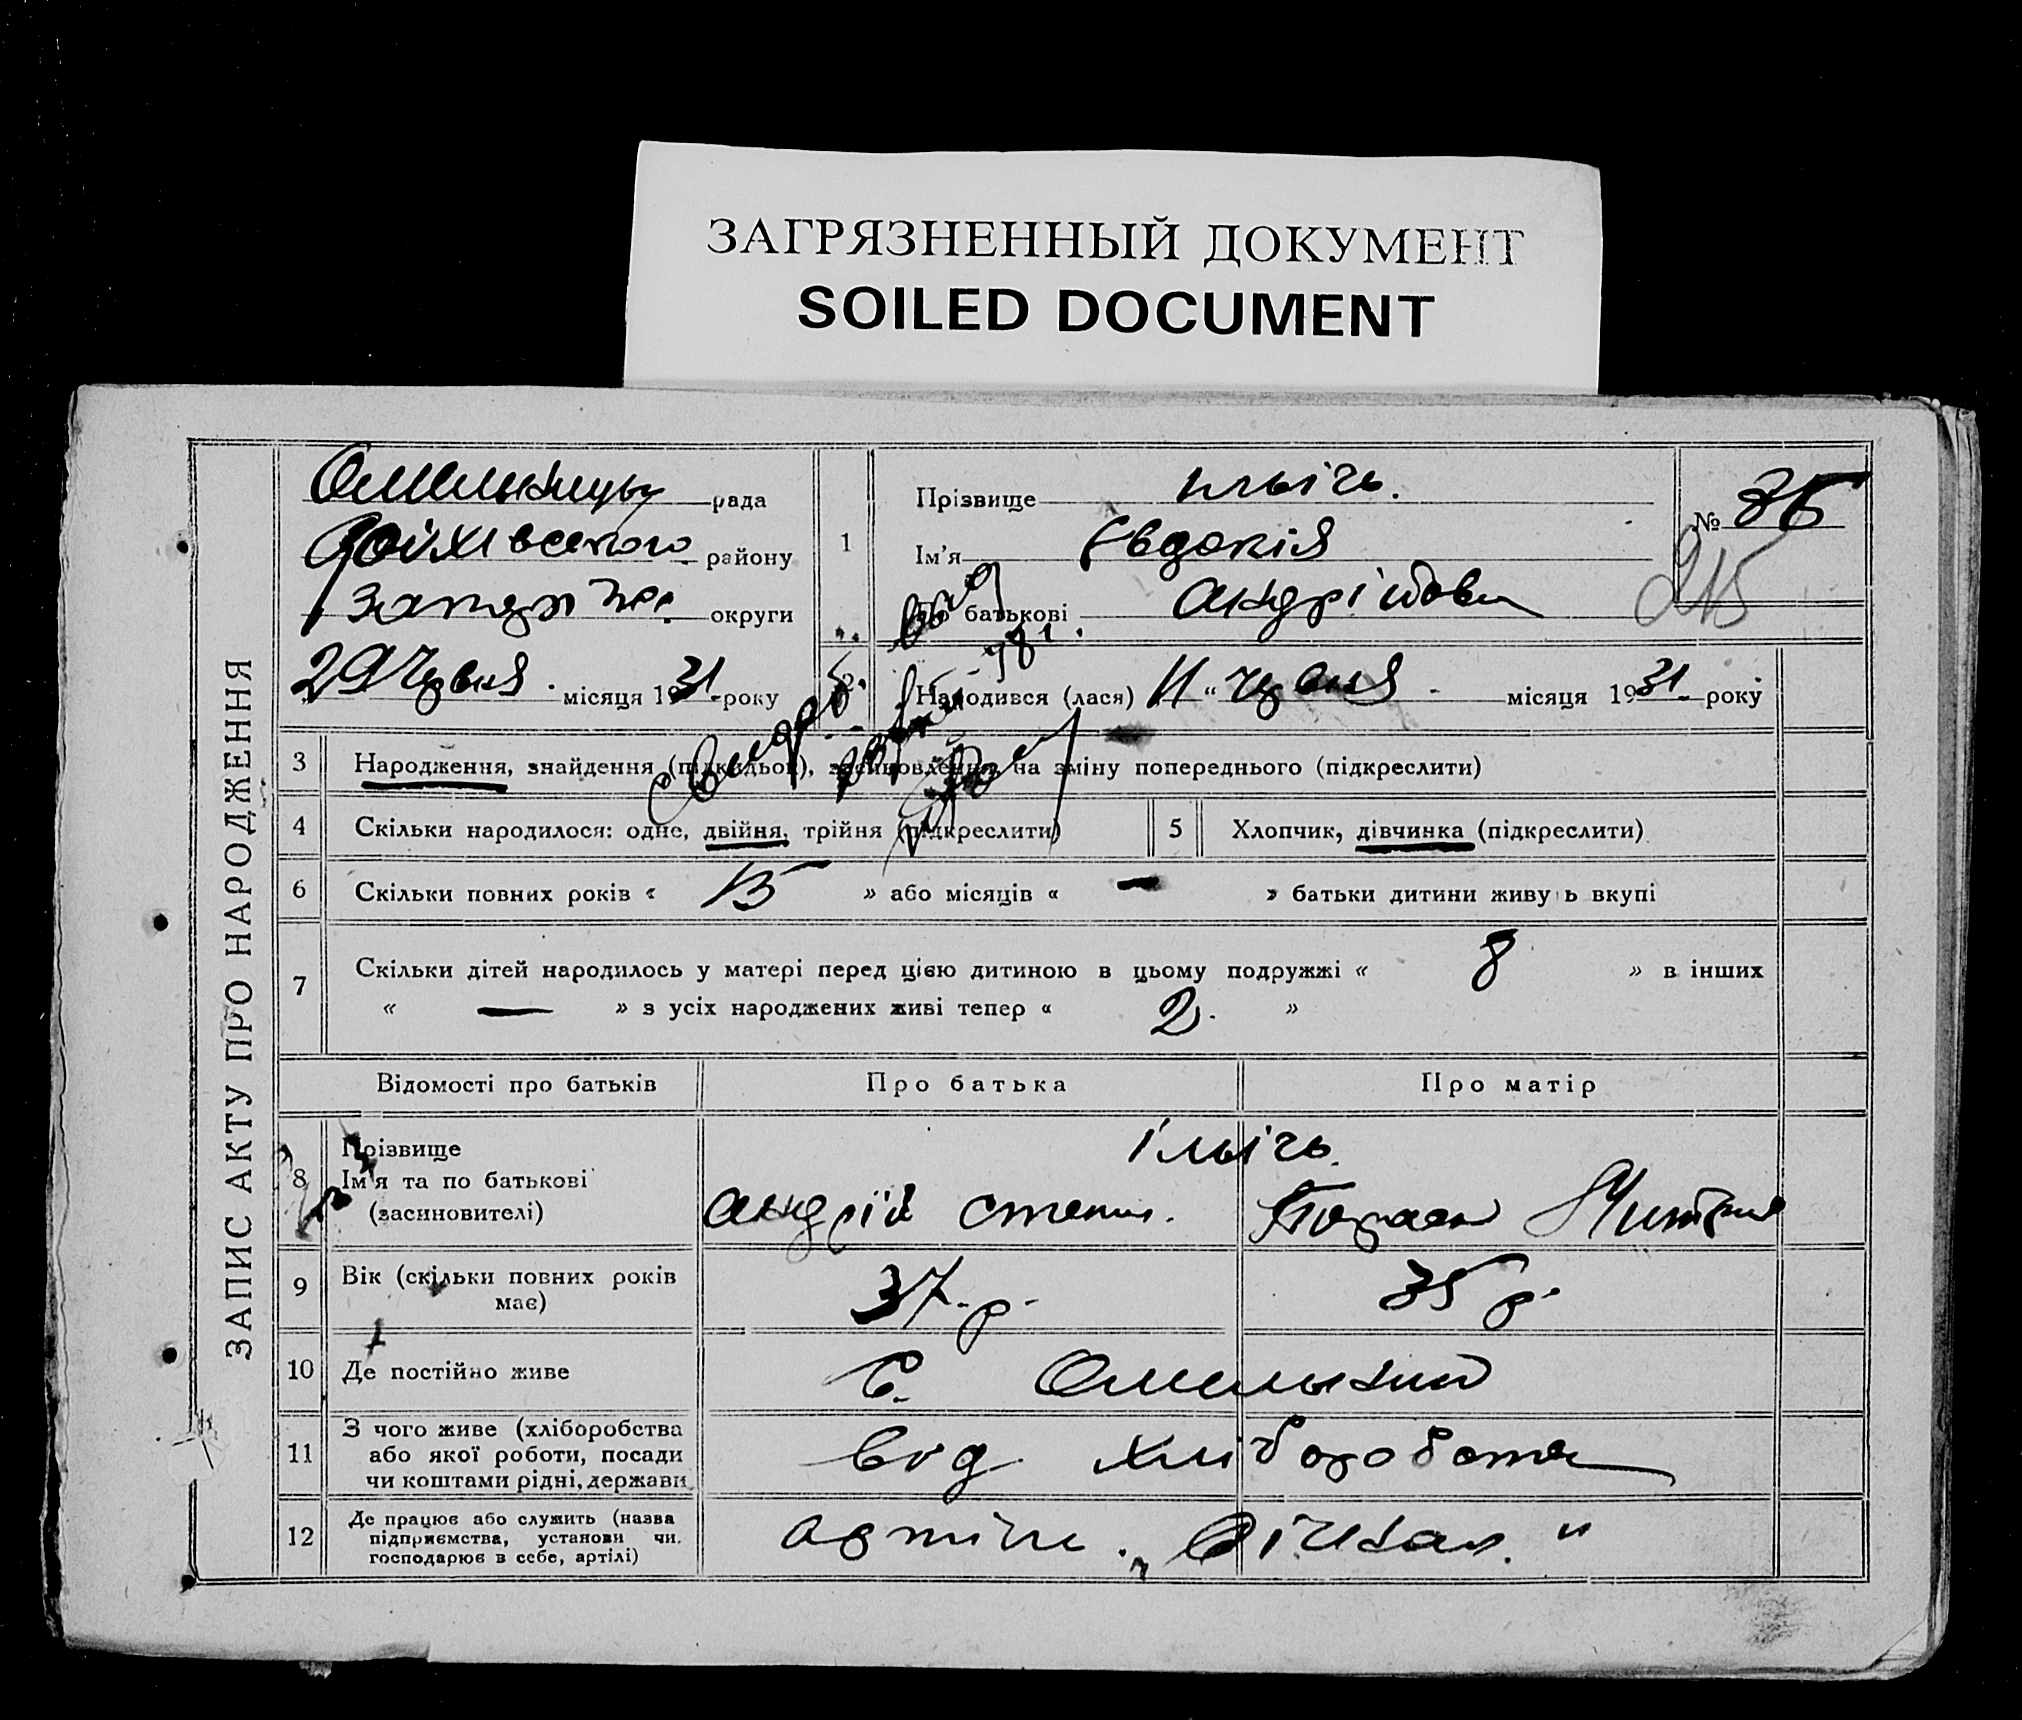 ЗАГРЯЗНЕННЫЙ ДОКУМЕНТ
SOILED DOCUMENT
ЗАПИС АКТУ ПРО НАРОДЖЕННЯ
рада
району
округи
29 Червня місяця 1931 року
1
Прізвище ильічь.
Ім'я Євдокія
По батькові Андріивна
№ 36
215
2
Народився (лася) 11 " Червня місяця 1931 року
3 Народження, знайдення (підкидьок), засиновлення, на зміну попереднього (підкреслити)
4 Скільки народилося: одне, двійня, трійня (підкреслити)
5 Хлопчик, дівчинка (підкреслити)
6 Скільки повних років « 15 » або місяців « — » батьки дитини живуть вкупі
7 Скільки дітей народилось у матері перед цією дитиною в цьому подружжі « 8 » в інших
« — » з усіх народжених живі тепер « 2. »
Відомості про батьків Про батька Про матір
8 Прізвище
Ім'я та по батькові
(засиновителі)
ільічь.
Андрій Степан.
9 Вік (скільки повних років
має)
37. р. 35 р.
10 Де постійно живе
С. Омельник
11 З чого живе (хліборобства
або якої роботи, посади
чи коштами рідні, держави
від хліборобства
12 Де працює або служить (назва
підприємства, установи чи.
господарює в себе, артілі)
артіль